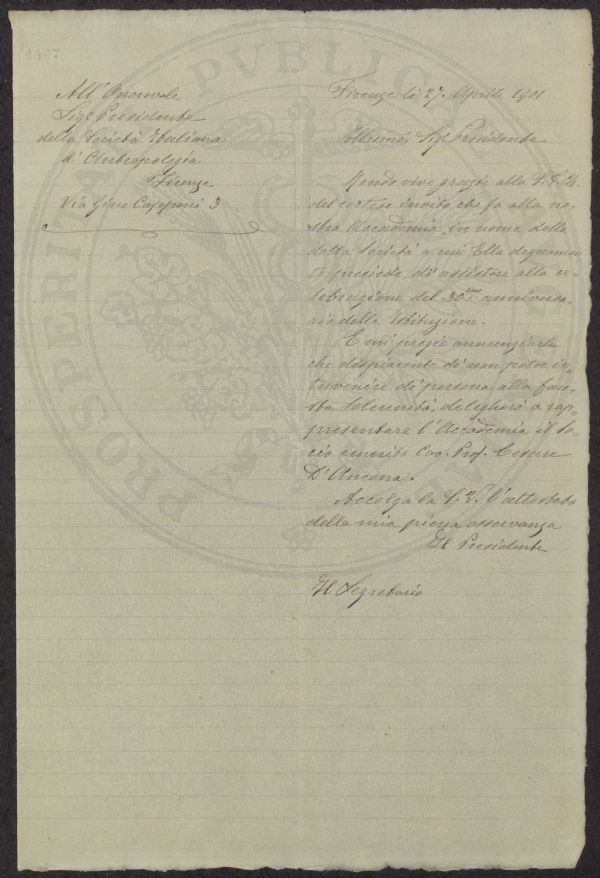 All' Onorevole
Sigr Presidente
della Società Italiana
d' Antropologia
Firenze
Via Gino Capponi 3
Firenze li 27. Aprile 1901
Illmo Sigr Presidente
Rendo vive grazie alla S. V. Ill.
del cortese invito che fa alla no=
stra Accademia, in nome della
dotta Società a cui Ella degnamen
te presiede, di assistere alla ce=
lebrazione del 30mo anniversa=
rio della Istituzione.
E mi pregio annunziarle
che dispiacente di non poter in=
tervenire di persona alla fau=
sta solennità, delegherò a rap=
presentare l'Accademia il So=
cio emerito Cav. Prof. Cesare
D'Ancona.
Accolga la S. V. l'attestato
della mia piena osservanza
Il Presidente
Il Segretario
PROSPERITÀ PVBLICA